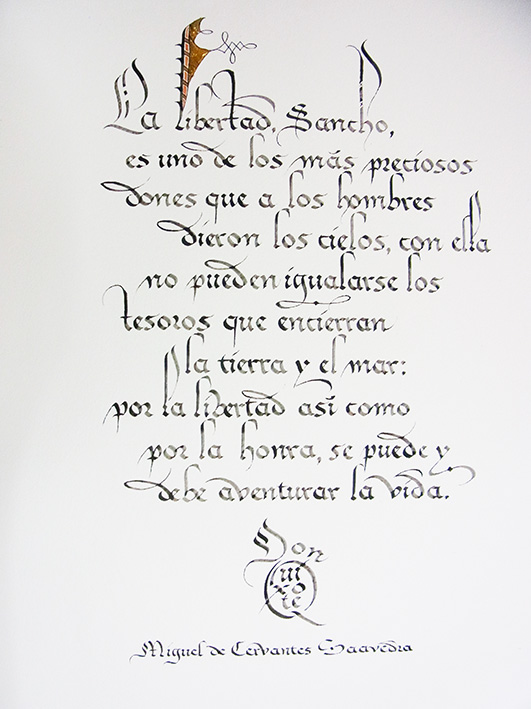 La libertad, Sancho,
es uno de los más preciosos
dones que a los hombres
dieron los cielos, con ella
no pueden igualarse los
tesoros que encierran
la tierra y el mar:
por la libertad así como
por la honra, se puede y
debe aventurar la vida.
Don
Qui
xo
te
Miguel de Cervantes Saavedra